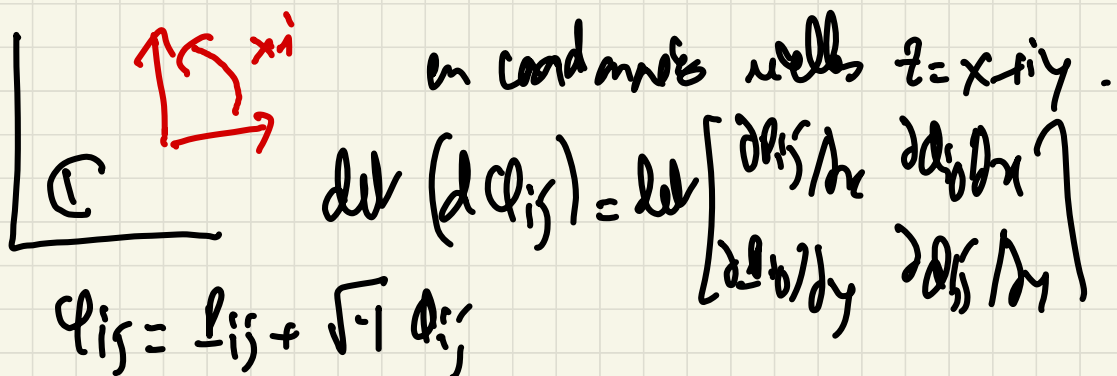 ×i
en coordonnées réelles z = x + iy.
ℂ
det (dφij) = det [ ∂Pij/∂x ∂Qij/∂x
∂Pij/∂y ∂Qij/∂y ]
φij = Pij + √-1 Qij